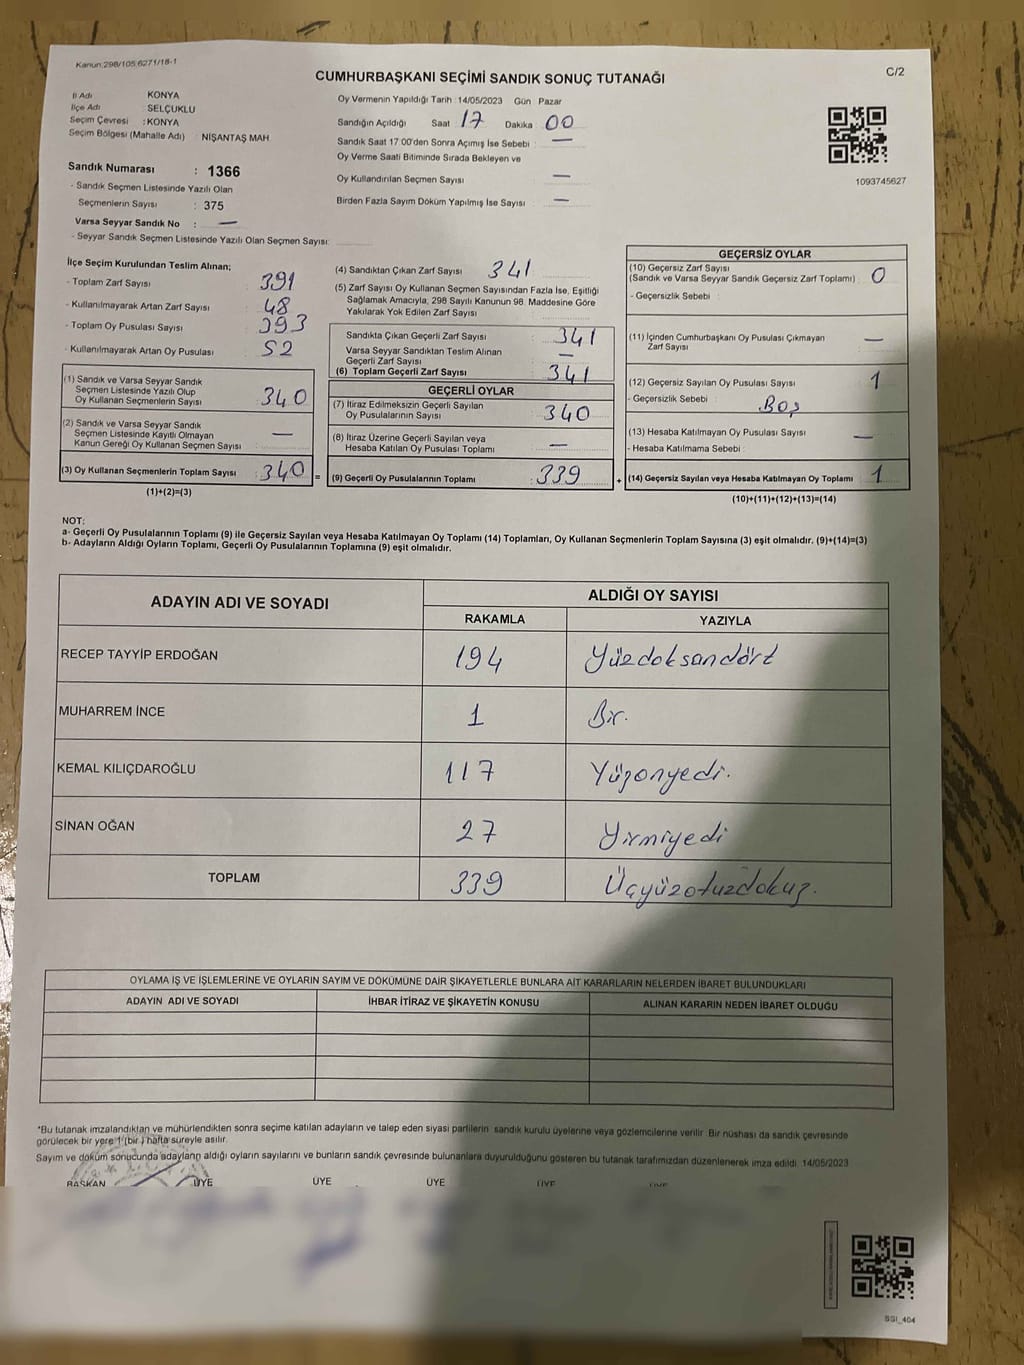 Kanun:298/105;6271/18-1
C/2
CUMHURBAŞKANI SEÇİMİ SANDIK SONUÇ TUTANAĞI
İl Adı KONYA
İlçe Adı SELÇUKLU
Seçim Çevresi : KONYA
Seçim Bölgesi (Mahalle Adı) NİŞANTAŞ MAH
Sandık Numarası : 1366
- Sandık Seçmen Listesinde Yazılı Olan
Seçmenlerin Sayısı : 375
Varsa Seyyar Sandık No : —
- Seyyar Sandık Seçmen Listesinde Yazılı Olan Seçmen Sayısı:
Oy Vermenin Yapıldığı Tarih :14/05/2023 Gün : Pazar
Sandığın Açıldığı Saat 17 Dakika 00
Sandık Saat 17:00'den Sonra Açımış İse Sebebi : —
Oy Verme Saati Bitiminde Sırada Bekleyen ve
Oy Kullandırılan Seçmen Sayısı —
Birden Fazla Sayım Döküm Yapılmış İse Sayısı : —
1093745627
İlçe Seçim Kurulundan Teslim Alınan;
- Toplam Zarf Sayısı : 391
- Kullanılmayarak Artan Zarf Sayısı : 48
- Toplam Oy Pusulası Sayısı : 393
- Kullanılmayarak Artan Oy Pusulası : 52
(1) Sandık ve Varsa Seyyar Sandık
Seçmen Listesinde Yazılı Olup
Oy Kullanan Seçmenlerin Sayısı : 340
(2) Sandık ve Varsa Seyyar Sandık
Seçmen Listesinde Kayıtlı Olmayan
Kanun Gereği Oy Kullanan Seçmen Sayısı : —
(3) Oy Kullanan Seçmenlerin Toplam Sayısı : 340 =
(1)+(2)=(3)
(4) Sandıktan Çıkan Zarf Sayısı 341
(5) Zarf Sayısı Oy Kullanan Seçmen Sayısından Fazla İse, Eşitliği
Sağlamak Amacıyla, 298 Sayılı Kanunun 98. Maddesine Göre
Yakılarak Yok Edilen Zarf Sayısı
Sandıkta Çıkan Geçerli Zarf Sayısı : 341
Varsa Seyyar Sandıktan Teslim Alınan
Geçerli Zarf Sayısı —
(6) Toplam Geçerli Zarf Sayısı : 341
GEÇERLİ OYLAR
(7) İtiraz Edilmeksizin Geçerli Sayılan
Oy Pusulalarının Sayısı : 340
(8) İtiraz Üzerine Geçerli Sayılan veya
Hesaba Katılan Oy Pusulası Toplamı : —
(9) Geçerli Oy Pusulalarının Toplamı : 339 +
GEÇERSİZ OYLAR
(10) Geçersiz Zarf Sayısı
(Sandık ve Varsa Seyyar Sandık Geçersiz Zarf Toplamı) : 0
- Geçersizlik Sebebi :
(11) İçinden Cumhurbaşkanı Oy Pusulası Çıkmayan
Zarf Sayısı : —
(12) Geçersiz Sayılan Oy Pusulası Sayısı : 1
- Geçersizlik Sebebi : Boş
(13) Hesaba Katılmayan Oy Pusulası Sayısı : —
- Hesaba Katılmama Sebebi :
(14) Geçersiz Sayılan veya Hesaba Katılmayan Oy Toplamı : 1
(10)+(11)+(12)+(13)=(14)
NOT:
a- Geçerli Oy Pusulalarının Toplamı (9) ile Geçersiz Sayılan veya Hesaba Katılmayan Oy Toplamı (14) Toplamları, Oy Kullanan Seçmenlerin Toplam Sayısına (3) eşit olmalıdır. (9)+(14)=(3)
b- Adayların Aldığı Oyların Toplamı, Geçerli Oy Pusulalarının Toplamına (9) eşit olmalıdır.
ADAYIN ADI VE SOYADI ALDIĞI OY SAYISI
RAKAMLA YAZIYLA
RECEP TAYYİP ERDOĞAN 194 Yüzdoksandört
MUHARREM İNCE 1 Bir.
KEMAL KILIÇDAROĞLU 117 Yüzonyedi.
SİNAN OĞAN 27 Yirmiyedi
TOPLAM 339 Üçyüzotuzdokuz.
OYLAMA İŞ VE İŞLEMLERİNE VE OYLARIN SAYIM VE DÖKÜMÜNE DAİR ŞİKAYETLERLE BUNLARA AİT KARARLARIN NELERDEN İBARET BULUNDUKLARI
ADAYIN ADI VE SOYADI İHBAR İTİRAZ VE ŞİKAYETİN KONUSU ALINAN KARARIN NEDEN İBARET OLDUĞU
*Bu tutanak imzalandıktan ve mühürlendikten sonra seçime katılan adayların ve talep eden siyasi partilerin sandık kurulu üyelerine veya gözlemcilerine verilir. Bir nüshası da sandık çevresinde
görülecek bir yere 1 (bir ) hafta süreyle asılır.
Sayım ve döküm sonucunda adayların aldığı oyların sayılarını ve bunların sandık çevresinde bulunanlara duyurulduğunu gösteren bu tutanak tarafımızdan düzenlenerek imza edildi. 14/05/2023
BAŞKAN ÜYE ÜYE ÜYE ÜYE ÜYE
SSI_404